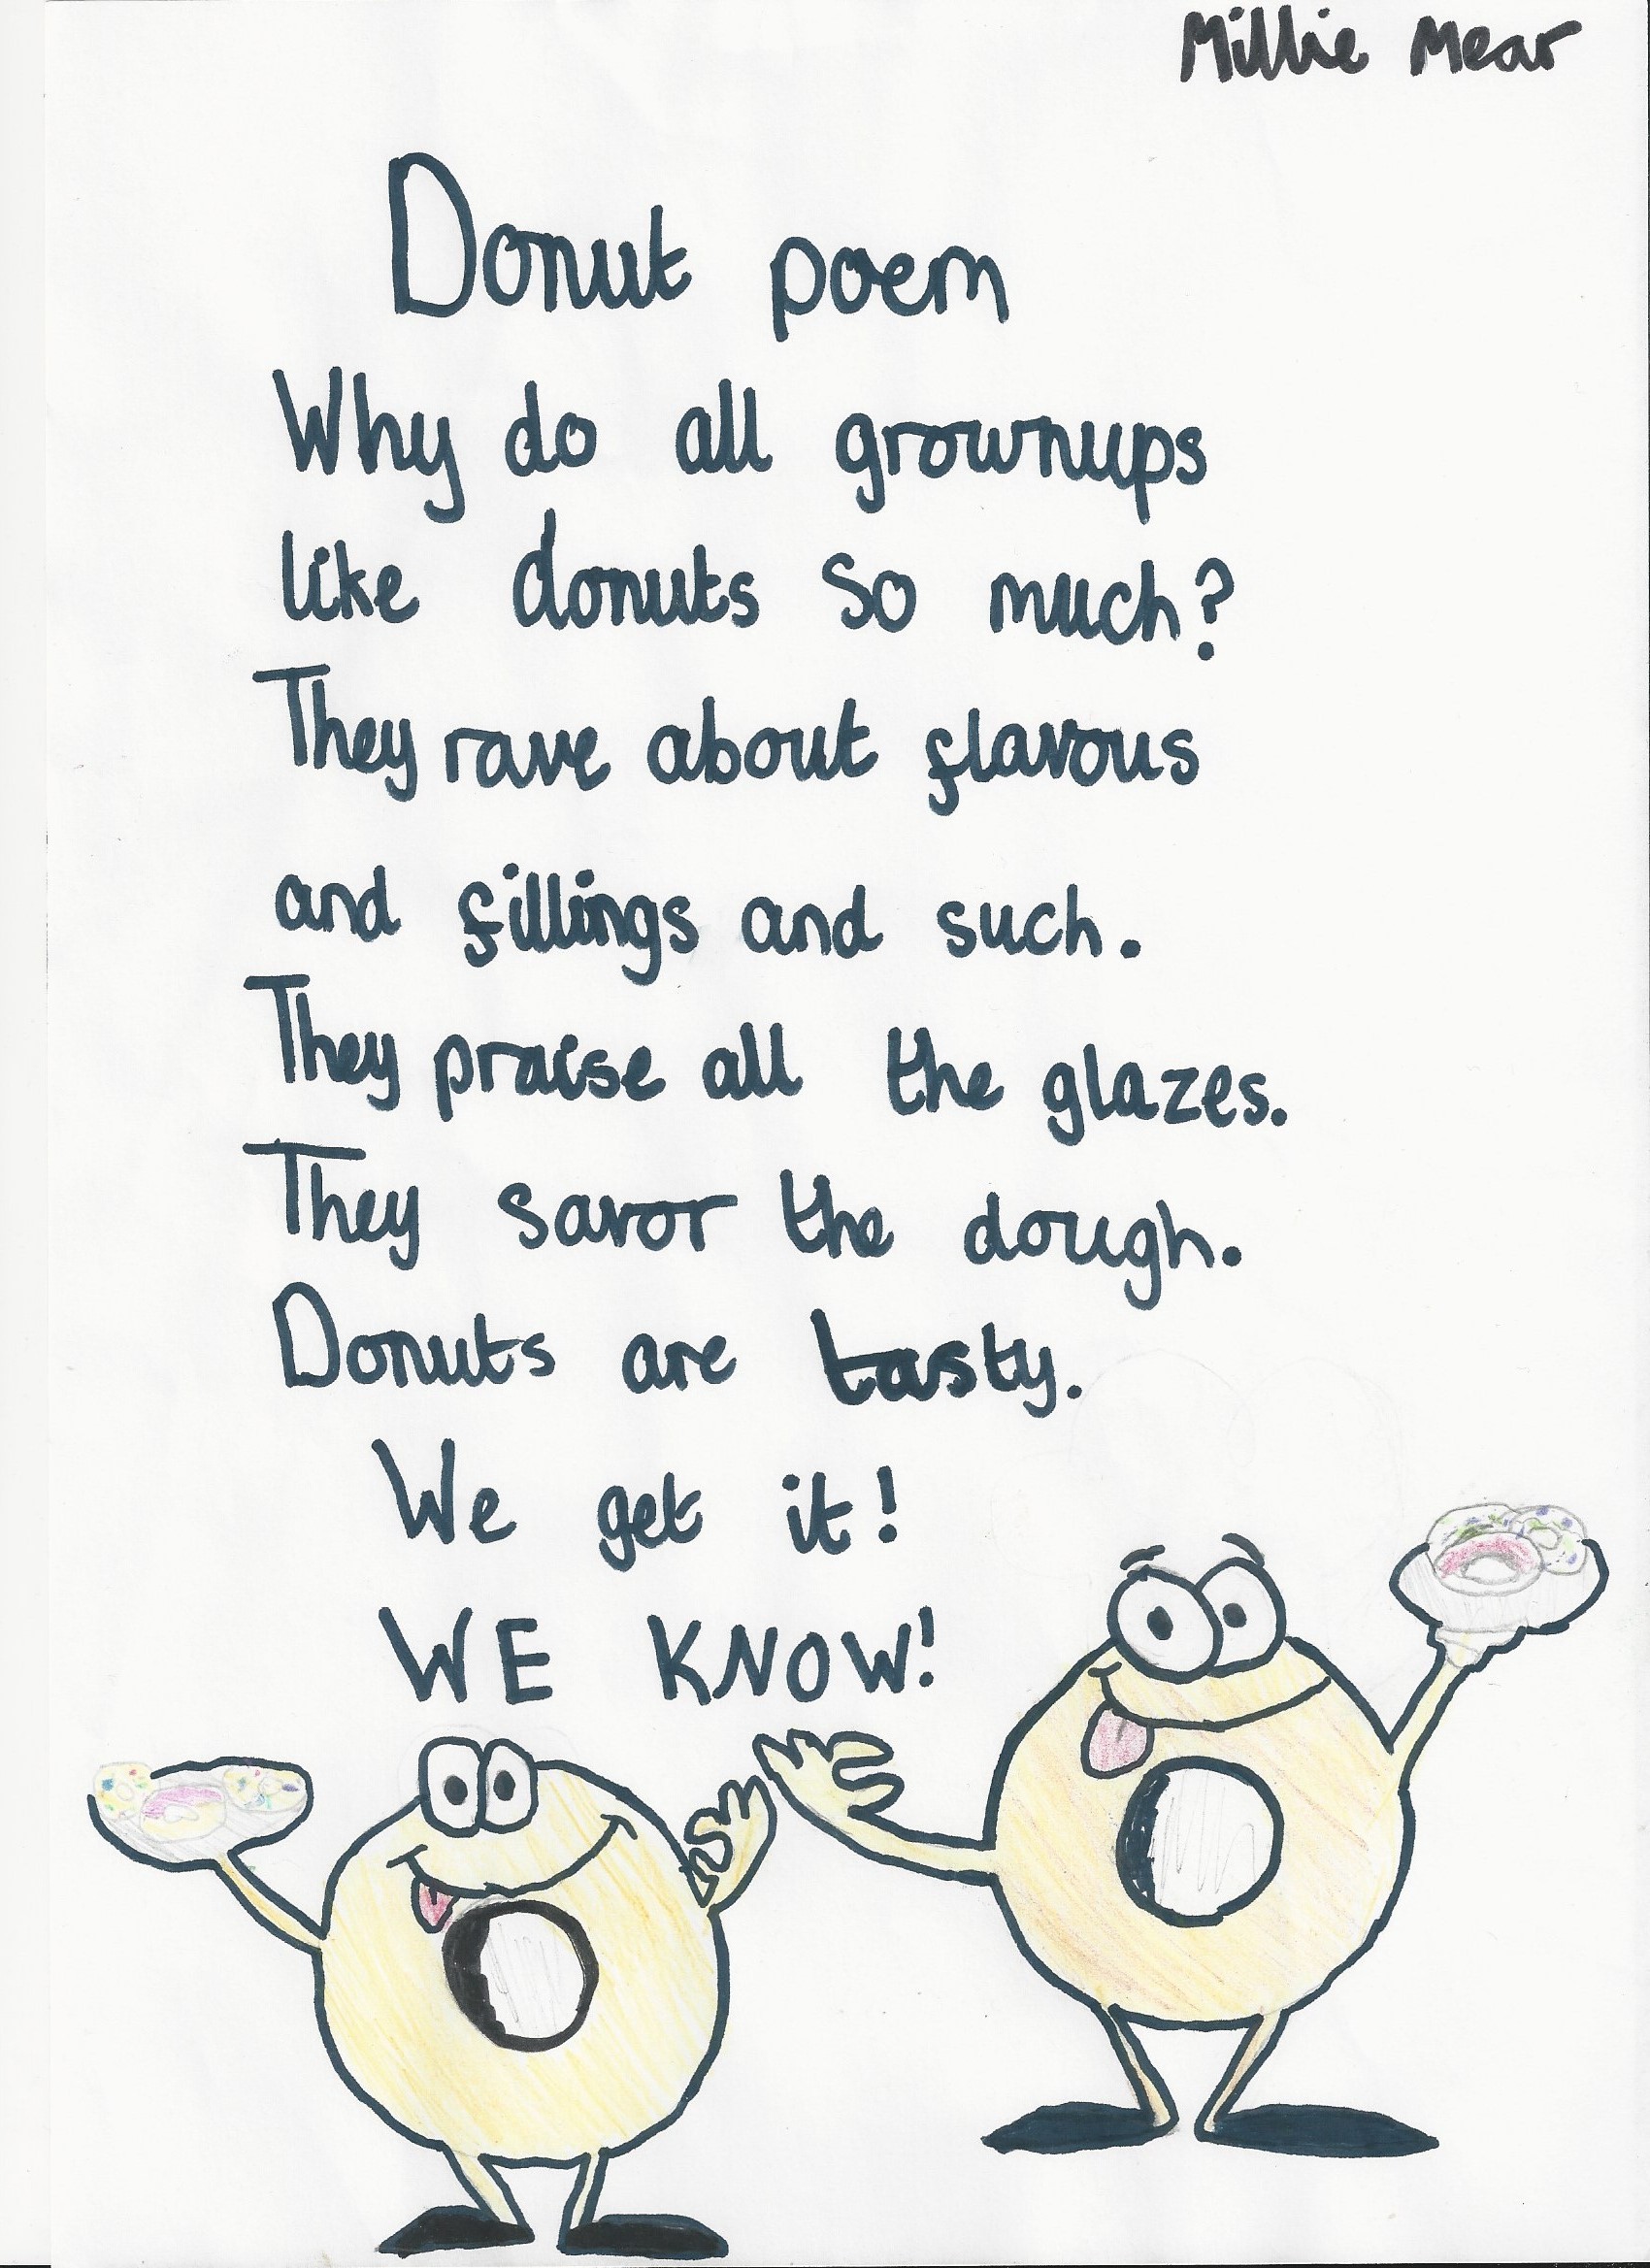 Millie Mear
Donut poem
Why do all grownups
like donuts so much?
They rave about flavous
and fillings and such.
They praise all the glazes.
They savor the dough.
Donuts are tasty.
We get it!
WE KNOW!